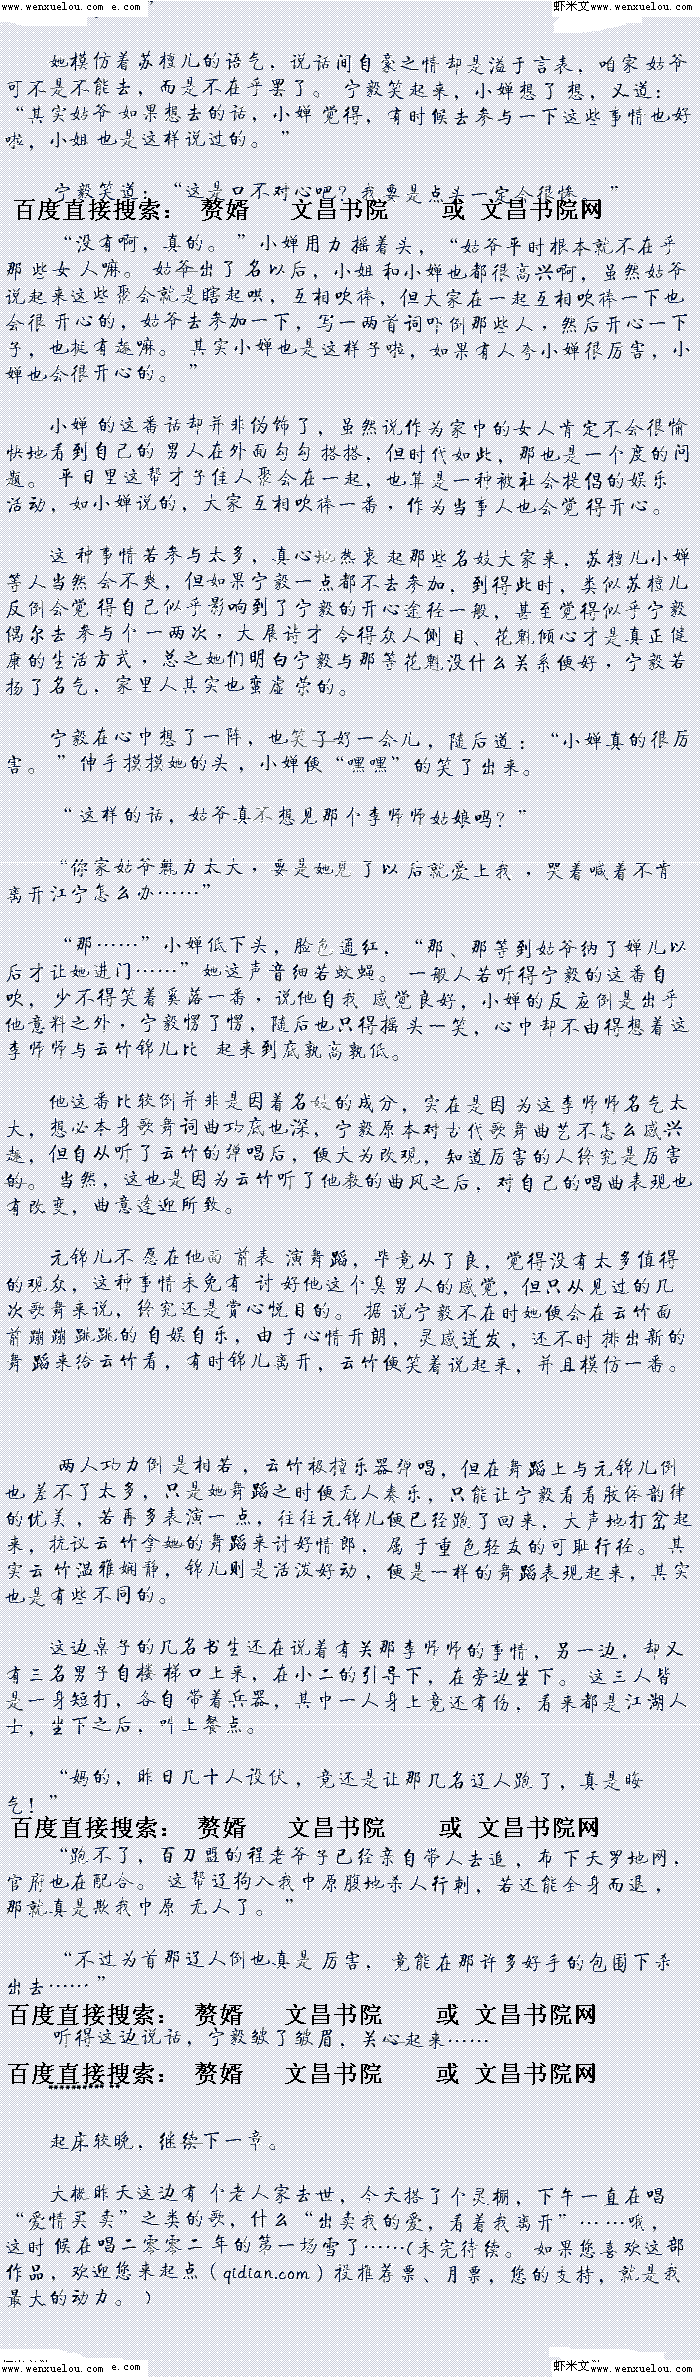 www.wenxuelou.com e.com 虾米文 www.wenxuelou.com
她模仿着苏檀儿的语气，说话间自豪之情却是溢于言表，咱家姑爷
可不是不能去，而是不在乎罢了。 宁毅笑起来，小婵想了想，又道：
“其实姑爷如果想去的话，小婵觉得，有时候去参与一下这些事情也好
啦，小姐也是这样说过的。”
宁毅笑道：“这是口不对心吧？我要是点头一定会很惨。”
百度直接搜索： 赘婿 文昌书院 或 文昌书院网
“没有啊，真的。”小婵用力摇着头，“姑爷平时根本就不在乎
那些女人嘛。 姑爷出了名以后，小姐和小婵也都很高兴啊，虽然姑爷
说起来这些聚会就是瞎起哄，互相吹捧，但大家在一起互相吹捧一下也
会很开心的，姑爷去参加一下，写一两首词吟倒那些人，然后开心一下
子，也挺有趣嘛。 其实小婵也是这样子啦，如果有人夸小婵很厉害，小
婵也会很开心的。”
小婵的这番话却并非伪饰了，虽然说作为家中的女人肯定不会很愉
快地看到自己的男人在外面勾勾搭搭，但时代如此，那也是一个度的问
题。 平日里这帮才子佳人聚会在一起，也算是一种被社会提倡的娱乐
活动，如小婵说的，大家互相吹捧一番，作为当事人也会觉得开心。
这种事情若参与太多，真心地热衷起那些名妓大家来，苏檀儿小婵
等人当然会不爽，但如果宁毅一点都不去参加，到得此时，类似苏檀儿
反倒会觉得自己似乎影响到了宁毅的开心途径一般，甚至觉得似乎宁毅
偶尔去参与个一两次，大展诗才令得众人侧目、花魁倾心才是真正健
康的生活方式，总之她们明白宁毅与那等花魁没什么关系便好，宁毅若
扬了名气，家里人其实也蛮虚荣的。
宁毅在心中想了一阵，也笑了好一会儿，随后道：“小婵真的很厉
害。”伸手摸摸她的头，小婵便“嘿嘿”的笑了出来。
“这样的话，姑爷真不想见那个李师师姑娘吗？”
“你家姑爷魅力太大，要是她见了以后就爱上我，哭着喊着不肯
离开江宁怎么办……”
“那……”小婵低下头，脸色通红，“那、那等到姑爷纳了婵儿以
后才让她进门……”她这声音细若蚊蝇。 一般人若听得宁毅的这番自
吹，少不得笑着奚落一番，说他自我感觉良好，小婵的反应倒是出乎
他意料之外，宁毅愣了愣，随后也只得摇头一笑，心中却不由得想着这
李师师与云竹锦儿比起来到底孰高孰低。
他这番比较倒并非是因着名妓的成分，实在是因为这李师师名气太
大，想必本身歌舞词曲功底也深，宁毅原本对古代歌舞曲艺不怎么感兴
趣，但自从听了云竹的弹唱后，便大为改观，知道厉害的人终究是厉害
的。 当然，这也是因为云竹听了他教的曲风之后，对自己的唱曲表现也
有改变，曲意逢迎所致。
元锦儿不愿在他面前表演舞蹈，毕竟从了良，觉得没有太多值得
的观众，这种事情未免有讨好他这个臭男人的感觉，但只从见过的几
次歌舞来说，终究还是赏心悦目的。 据说宁毅不在时她便会在云竹面
前蹦蹦跳跳的自娱自乐，由于心情开朗，灵感迸发，还不时排出新的
舞蹈来给云竹看，有时锦儿离开，云竹便笑着说起来，并且模仿一番。
两人功力倒是相若，云竹极擅乐器弹唱，但在舞蹈上与元锦儿倒
也差不了太多，只是她舞蹈之时便无人奏乐，只能让宁毅看看肢体韵律
的优美，若再多表演一点，往往元锦儿便已经跑了回来，大声地打岔起
来，抗议云竹拿她的舞蹈来讨好情郎，属于重色轻友的可耻行径。 其
实云竹温雅娴静，锦儿则是活泼好动，便是一样的舞蹈表现起来，其实
也是有些不同的。
这边桌子的几名书生还在说着有关那李师师的事情，另一边，却又
有三名男子自楼梯口上来，在小二的引导下，在旁边坐下。 这三人皆
是一身短打，各自带着兵器，其中一人身上竟还有伤，看来都是江湖人
士，坐下之后，叫上餐点。
“妈的，昨日几十人设伏，竟还是让那几名辽人跑了，真是晦
气！”
百度直接搜索： 赘婿 文昌书院 或 文昌书院网
“跑不了，百刀盟的程老爷子已经亲自带人去追，布下天罗地网，
官府也在配合。 这帮辽狗入我中原腹地杀人行刺，若还能全身而退，
那就真是欺我中原无人了。”
“不过为首那辽人倒也真是厉害， 竟能在那许多好手的包围下杀
出去……”
百度直接搜索： 赘婿 文昌书院 或 文昌书院网
听得这边说话，宁毅皱了皱眉，关心起来……
百度直接搜索： 赘婿 文昌书院 或 文昌书院网
********** **
起床较晚，继续下一章。
大概昨天这边有个老人家去世，今天搭了个灵棚，下午一直在唱
“爱情买卖”之类的歌，什么“出卖我的爱，看着我离开”……哦，
这时候在唱二零零二年的第一场雪了……(未完待续。 如果您喜欢这部
作品，欢迎您来起点（qidian.com）投推荐票、月票，您的支持，就是我
最大的动力。）
www.wenxuelou.com e.com 虾米文 www.wenxuelou.com